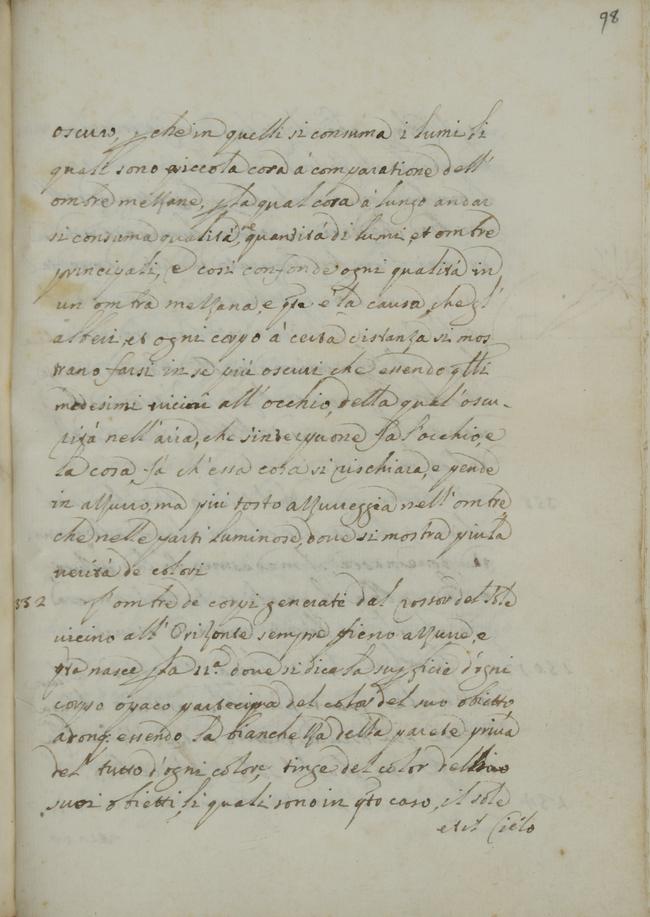 98
oscuro, p che in quelli si consuma i lumi li
quali sono piccola cosa á comparatione dell'
ombre mezzane, p la qual cosa á lungo andar
si consuma qualitá, et quantitá di lumi, et ombre
principali, e cosi confonde ogni qualitá in
un ombra mezzana, e qta e la causa, che gl'
alberi, et ogni corpo á certa distanza si mos
trano farsi in se piú oscuri che essendo qlli
medesimi vicini all'occhio, della qual'oscu-
ritá nell'aria, che s'interpone fra l'occhio, e
la cosa, fá ch'essa cosa si rischiara, e pende
in azzurro, ma piú tosto azzurreggia nell'ombre,
che nelle parti luminose, dove si mostra piu la
veritá de colori
332 l'ombre de corpi generate dal rossor del sole
vicino all'Orizonte sempre fieno azzurre, e
qto nasce p la 11.a dove si dice la supficie d'ogni
corpo opaco partecipa del color del suo obietto
adonq essendo la bianchezza della parete privá
del tutto d'ogni colore, tinge del color delli
suoi obietti, li quali sono in qto caso, il sole
et il Cielo